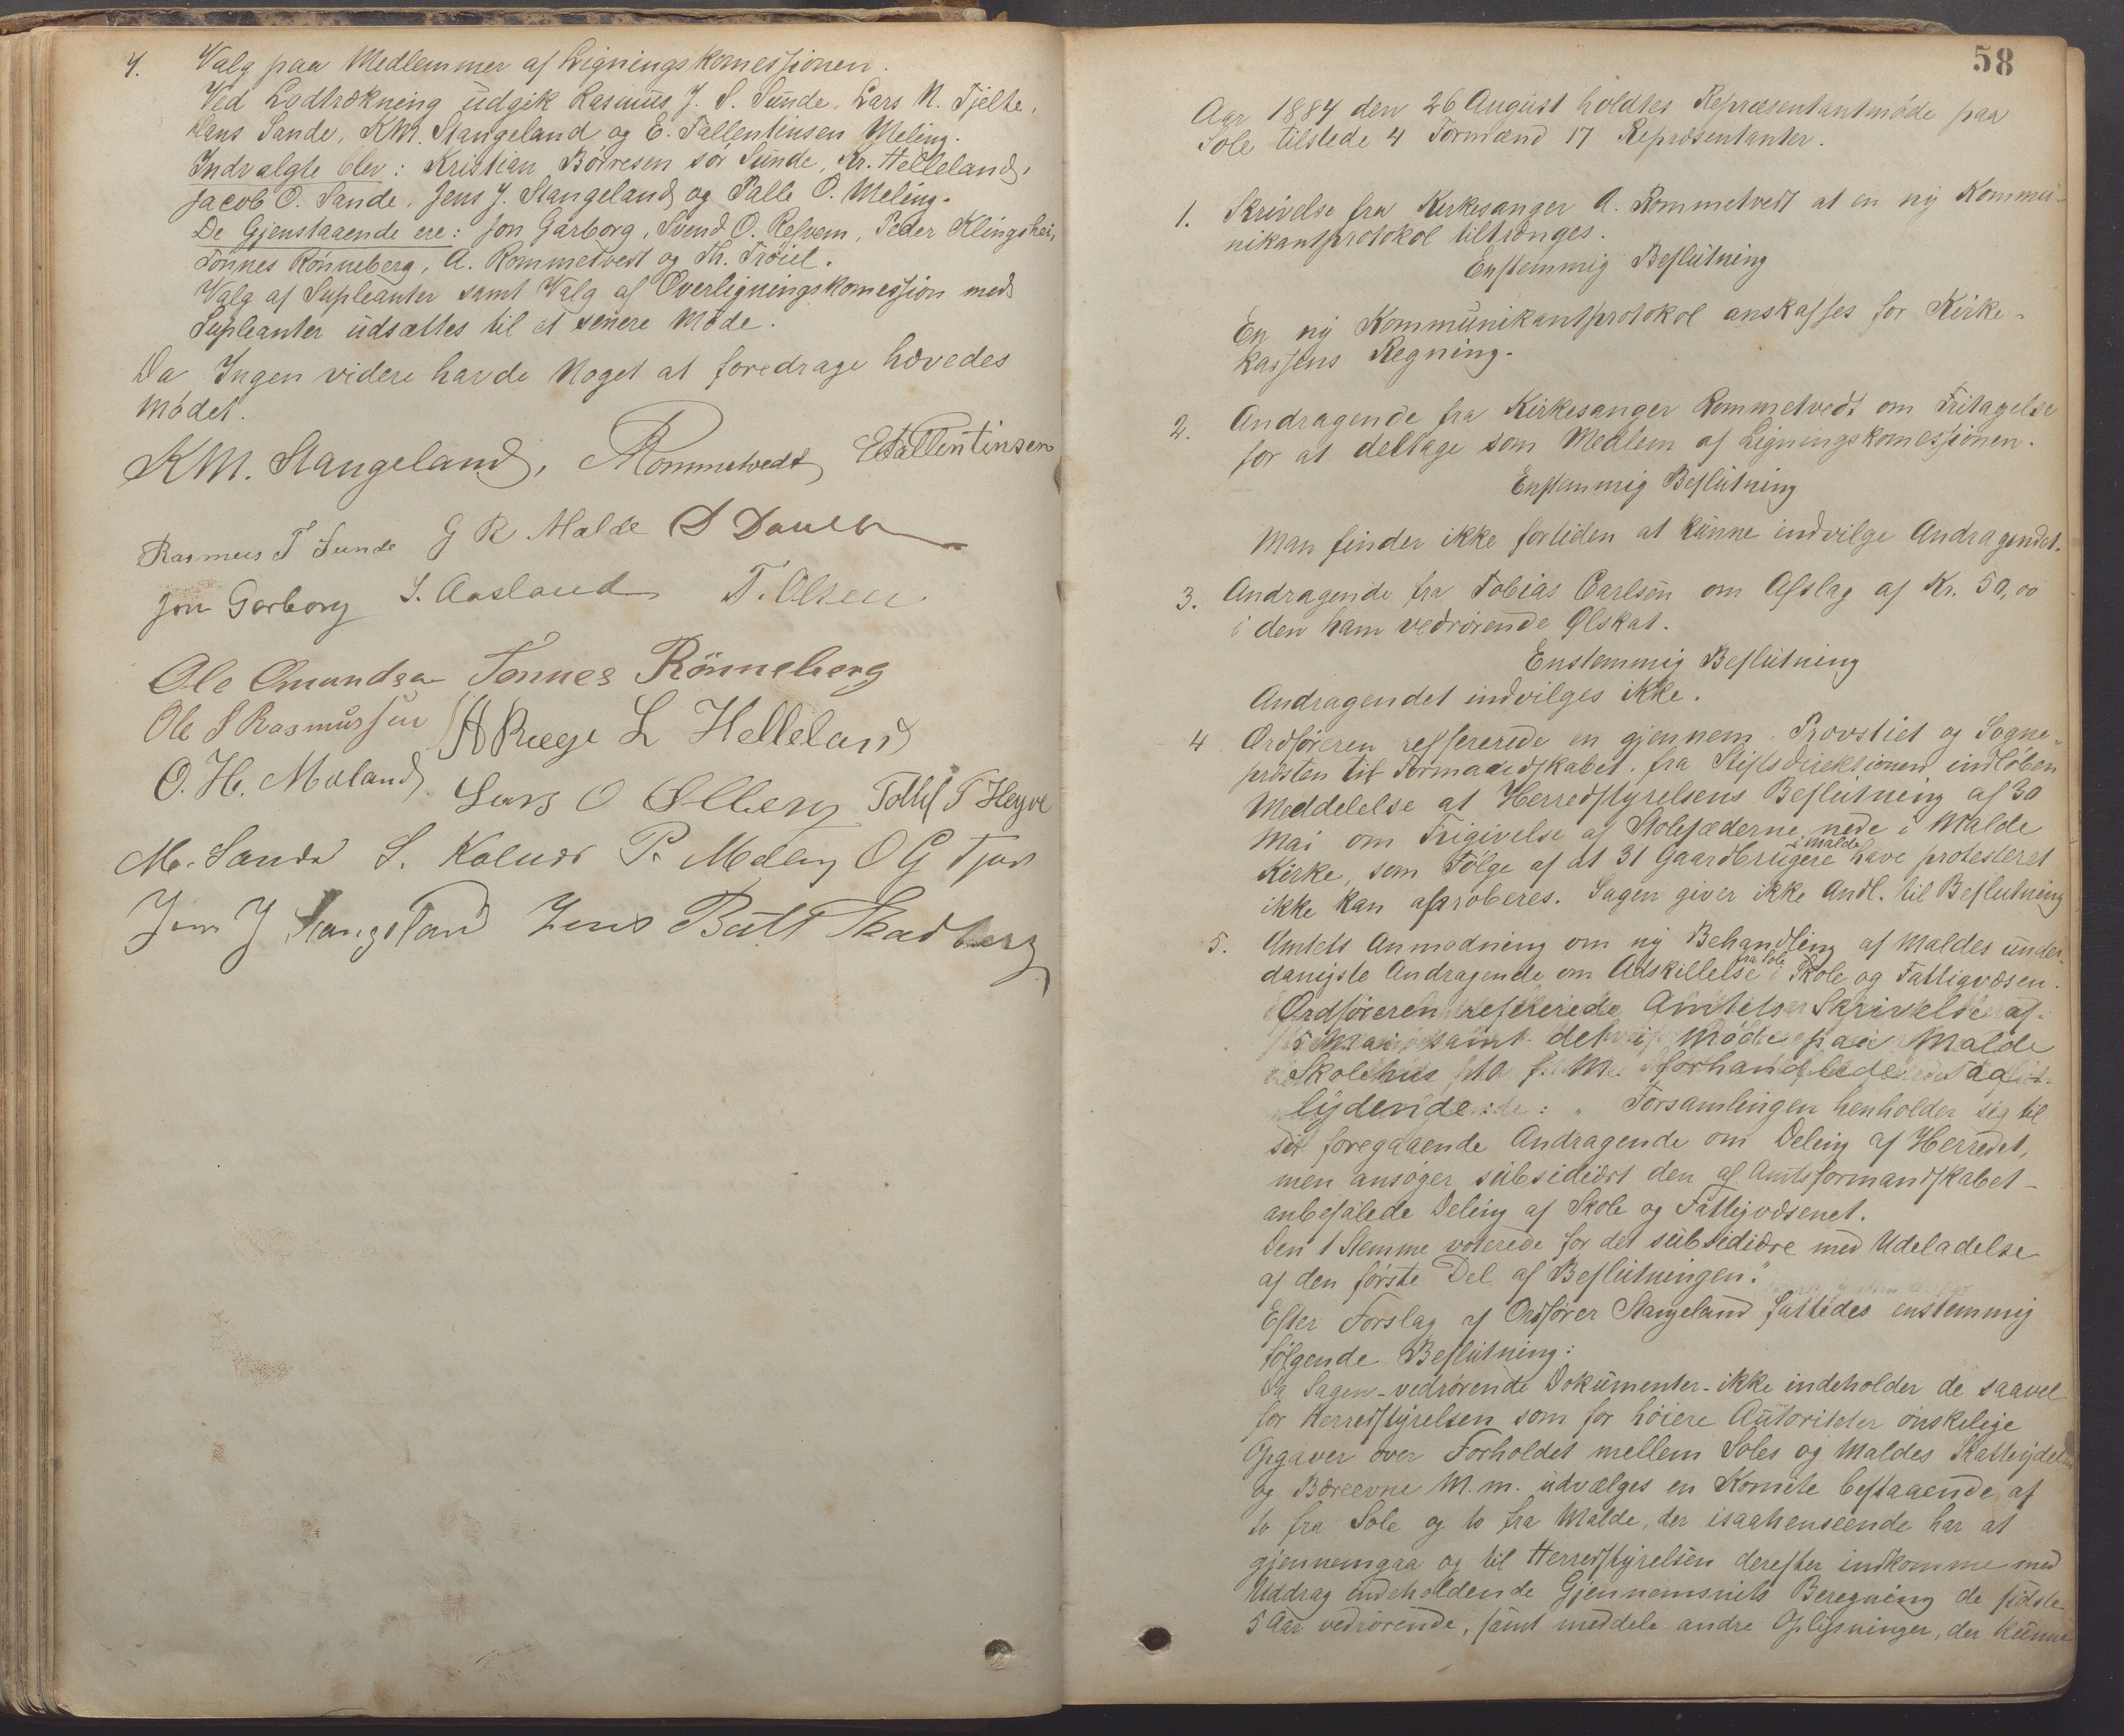 4. Valg paa Medlemmer af Ligningskomessionen.
Ved Lodtrækning udgik Rasmus J. S. Sunde, Lars N. Tjelte,
Hans Sande, KM. Stangeland og E. Tallentinsen Meling.
Indvalgte blev: Kristian Børresen sør Sunde, Kr. Helleland,
Jacob O. Sande, Jens J. Stangeland og Palle O. Meling.
De Gjenstaaende ere: Jon Garborg, Svend O. Refvem, Peder Klingshei,
Tönnes Rönneberg, A. Rommetvedt og Th. Trøiel.
Valg af Supleanter samt Valg af Overligningskomession med
Supleanter udsættes til et senere Møde.
Da Ingen videre havde Noget at foredrage hævedes
Mødet.
KM. Stangeland, Rommetvedt ETallentinsen
Rasmus T Sunde G R Malde
Jon Garborg S. Aasland T. Olsen
Ole Omundsen Tønnes Rönneberg
Ole S Rasmussen A Reege L Helleland
O. H. Mæland Lars O Ølberg
M. Sande S. Kolnes P. Meling O G Tjor
Jens J Stangeland Jens Bull Skadberg
58
Aar 1884 den 26 August holdtes Repræsentantmøde paa
Sole tilstede 4 Formænd 17 Repræsentanter.
1. Skrivelse fra Kirkesanger A. Rommetvedt at en ny Kommu-
nikantprotokol tiltrænges.
Enstemmig Beslutning
En ny Kommunikantprotokol anskaffes for Kirke-
kassens Regning.
2. Andragende fra Kirkesanger Rommetvedt om Fritagelse
for at deltage som Medlem af Ligningskomessionen.
Enstemmig Beslutning
Man finder ikke fortiden at kunne indvilge Andragendet.
3. Andragende fra Tobias Carlsen om Afslag af Kr. 50,00
i den ham vedrørende Ølskat.
Enstemmig Beslutning
Andragendet indvilges ikke.
4 Ordføreren reffererede en gjennem Provstiet og Sogne-
præsten til Formandskabet fra Stiftsdirektionen indløben
Meddelelse at Herredstyrelsens Beslutning af 30
Mai om Frigivelse af Stolesæderne nede i Malde
Kirke, som Følge af at 31 Gaardbrugere i Malde have protesteret
ikke kan aproberes. Sagen giver ikke Andl. til Beslutning
5. Amtets Anmodning om ny Behandling af Maldes under-
danigste Andragende om Adskillelse fra Sole i Skole og Fattigvæsen.
Ordføreren refererede Amtets Skrivelse af
5 Mai samt det i Møde paa Malde
Skolehus 10 f. M. forhandlede saa-
lydende: "Forsamlingen henholder sig til
sit foregaaende Andragende om Deling af Herredet,
men ansøger subsidiært den af Amtsformandskabet
anbefalede Deling af Skole og Fattigvæsenet.
Den 1 Stemme voterede for det subsidiære med Udeladelse
af den første Del af Beslutningen."
Efter Forslag af Ordfører Stangeland fattedes enstemmig
følgende Beslutning:
Da Sagen vedrørende Dokumenter ikke indeholder de saavel
for Herredstyrelsen som for høiere Autoriteter ønskelige
Opgaver over Forholdet mellem Soles og Maldes Skatteydelse
og Bæreevne M.m. udvælges en Komite bestaaende af
to fra Sole og to fra Malde, der isaahenseende har at
gjennemgaa og til Herredstyrelsen derefter indkomme med
Uddrag indeholdende Gjennemsnits Beregning de sidste
5 Aar vedrørende, samt meddele andre Oplysninger, der kunne